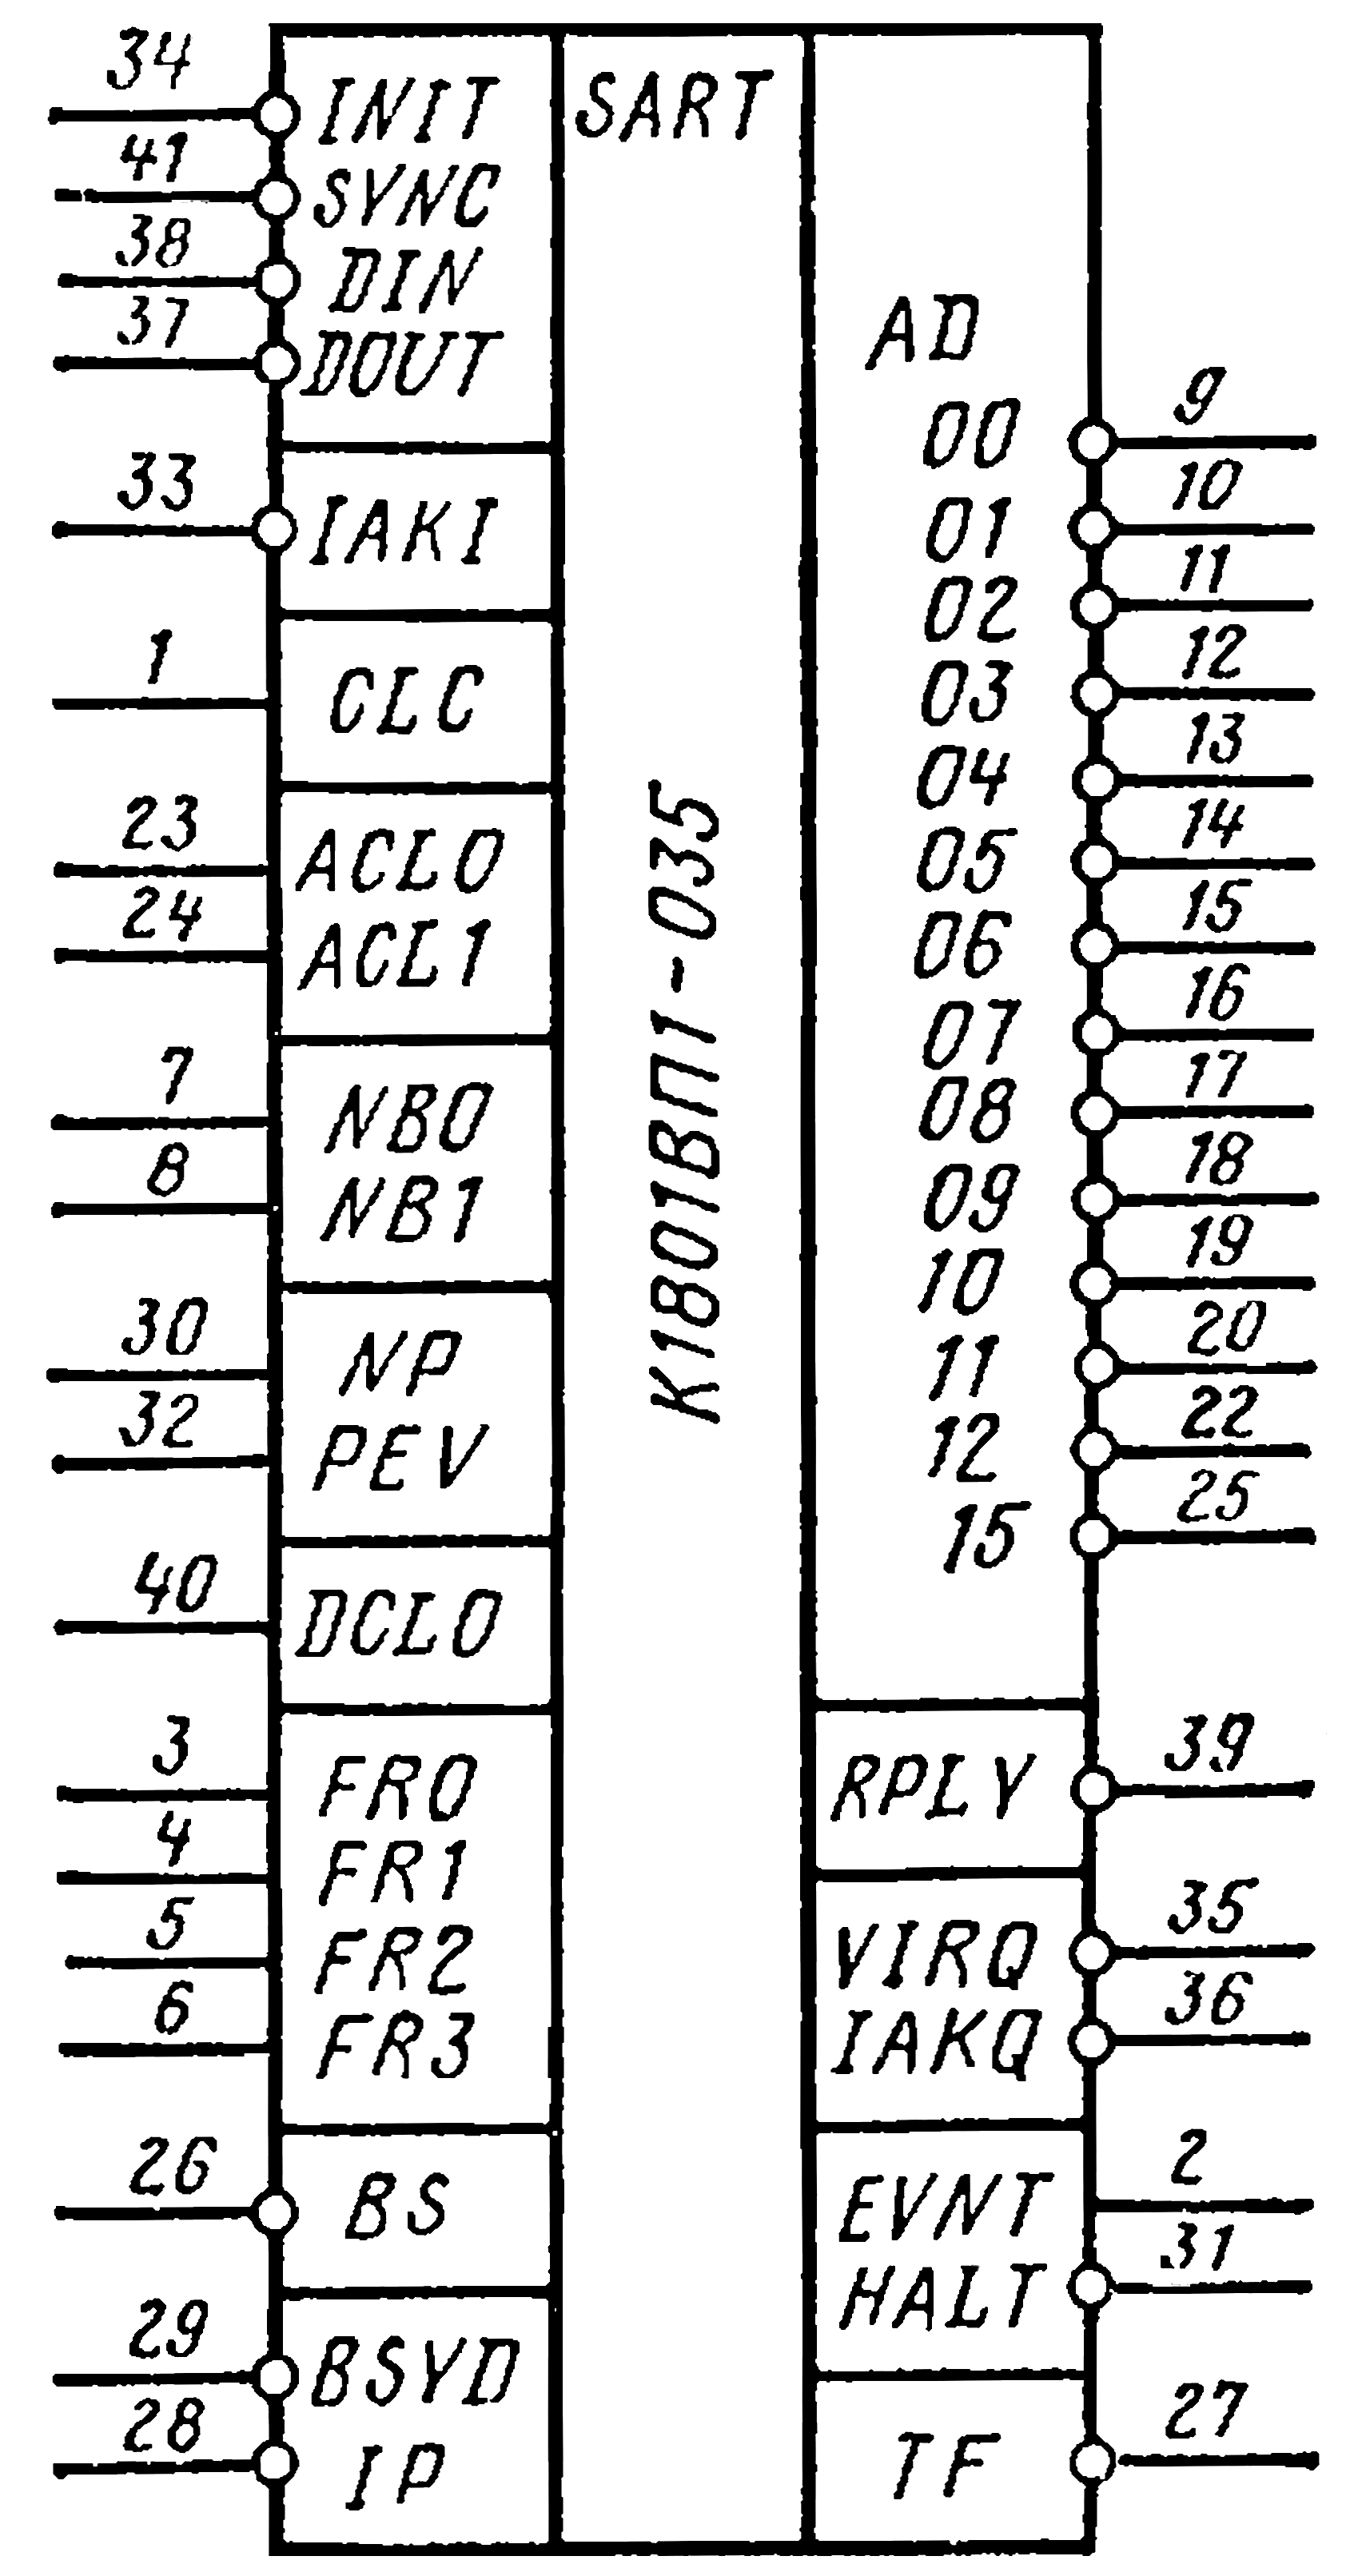 34 INIT
41 SYNC
38 DIN
37 DOUT
33 IAKI
1 CLC
23 ACL0
24 ACL1
7 NB0
8 NB1
30 NP
32 PEV
40 DCLO
3 FR0
4 FR1
5 FR2
6 FR3
26 BS
29 BSYD
28 IP
SART
К1801ВП1-035
AD
00 9
01 10
02 11
03 12
04 13
05 14
06 15
07 16
08 17
09 18
10 19
11 20
12 22
15 25
RPLY 39
VIRQ 35
IAKQ 36
EVNT 2
HALT 31
TF 27